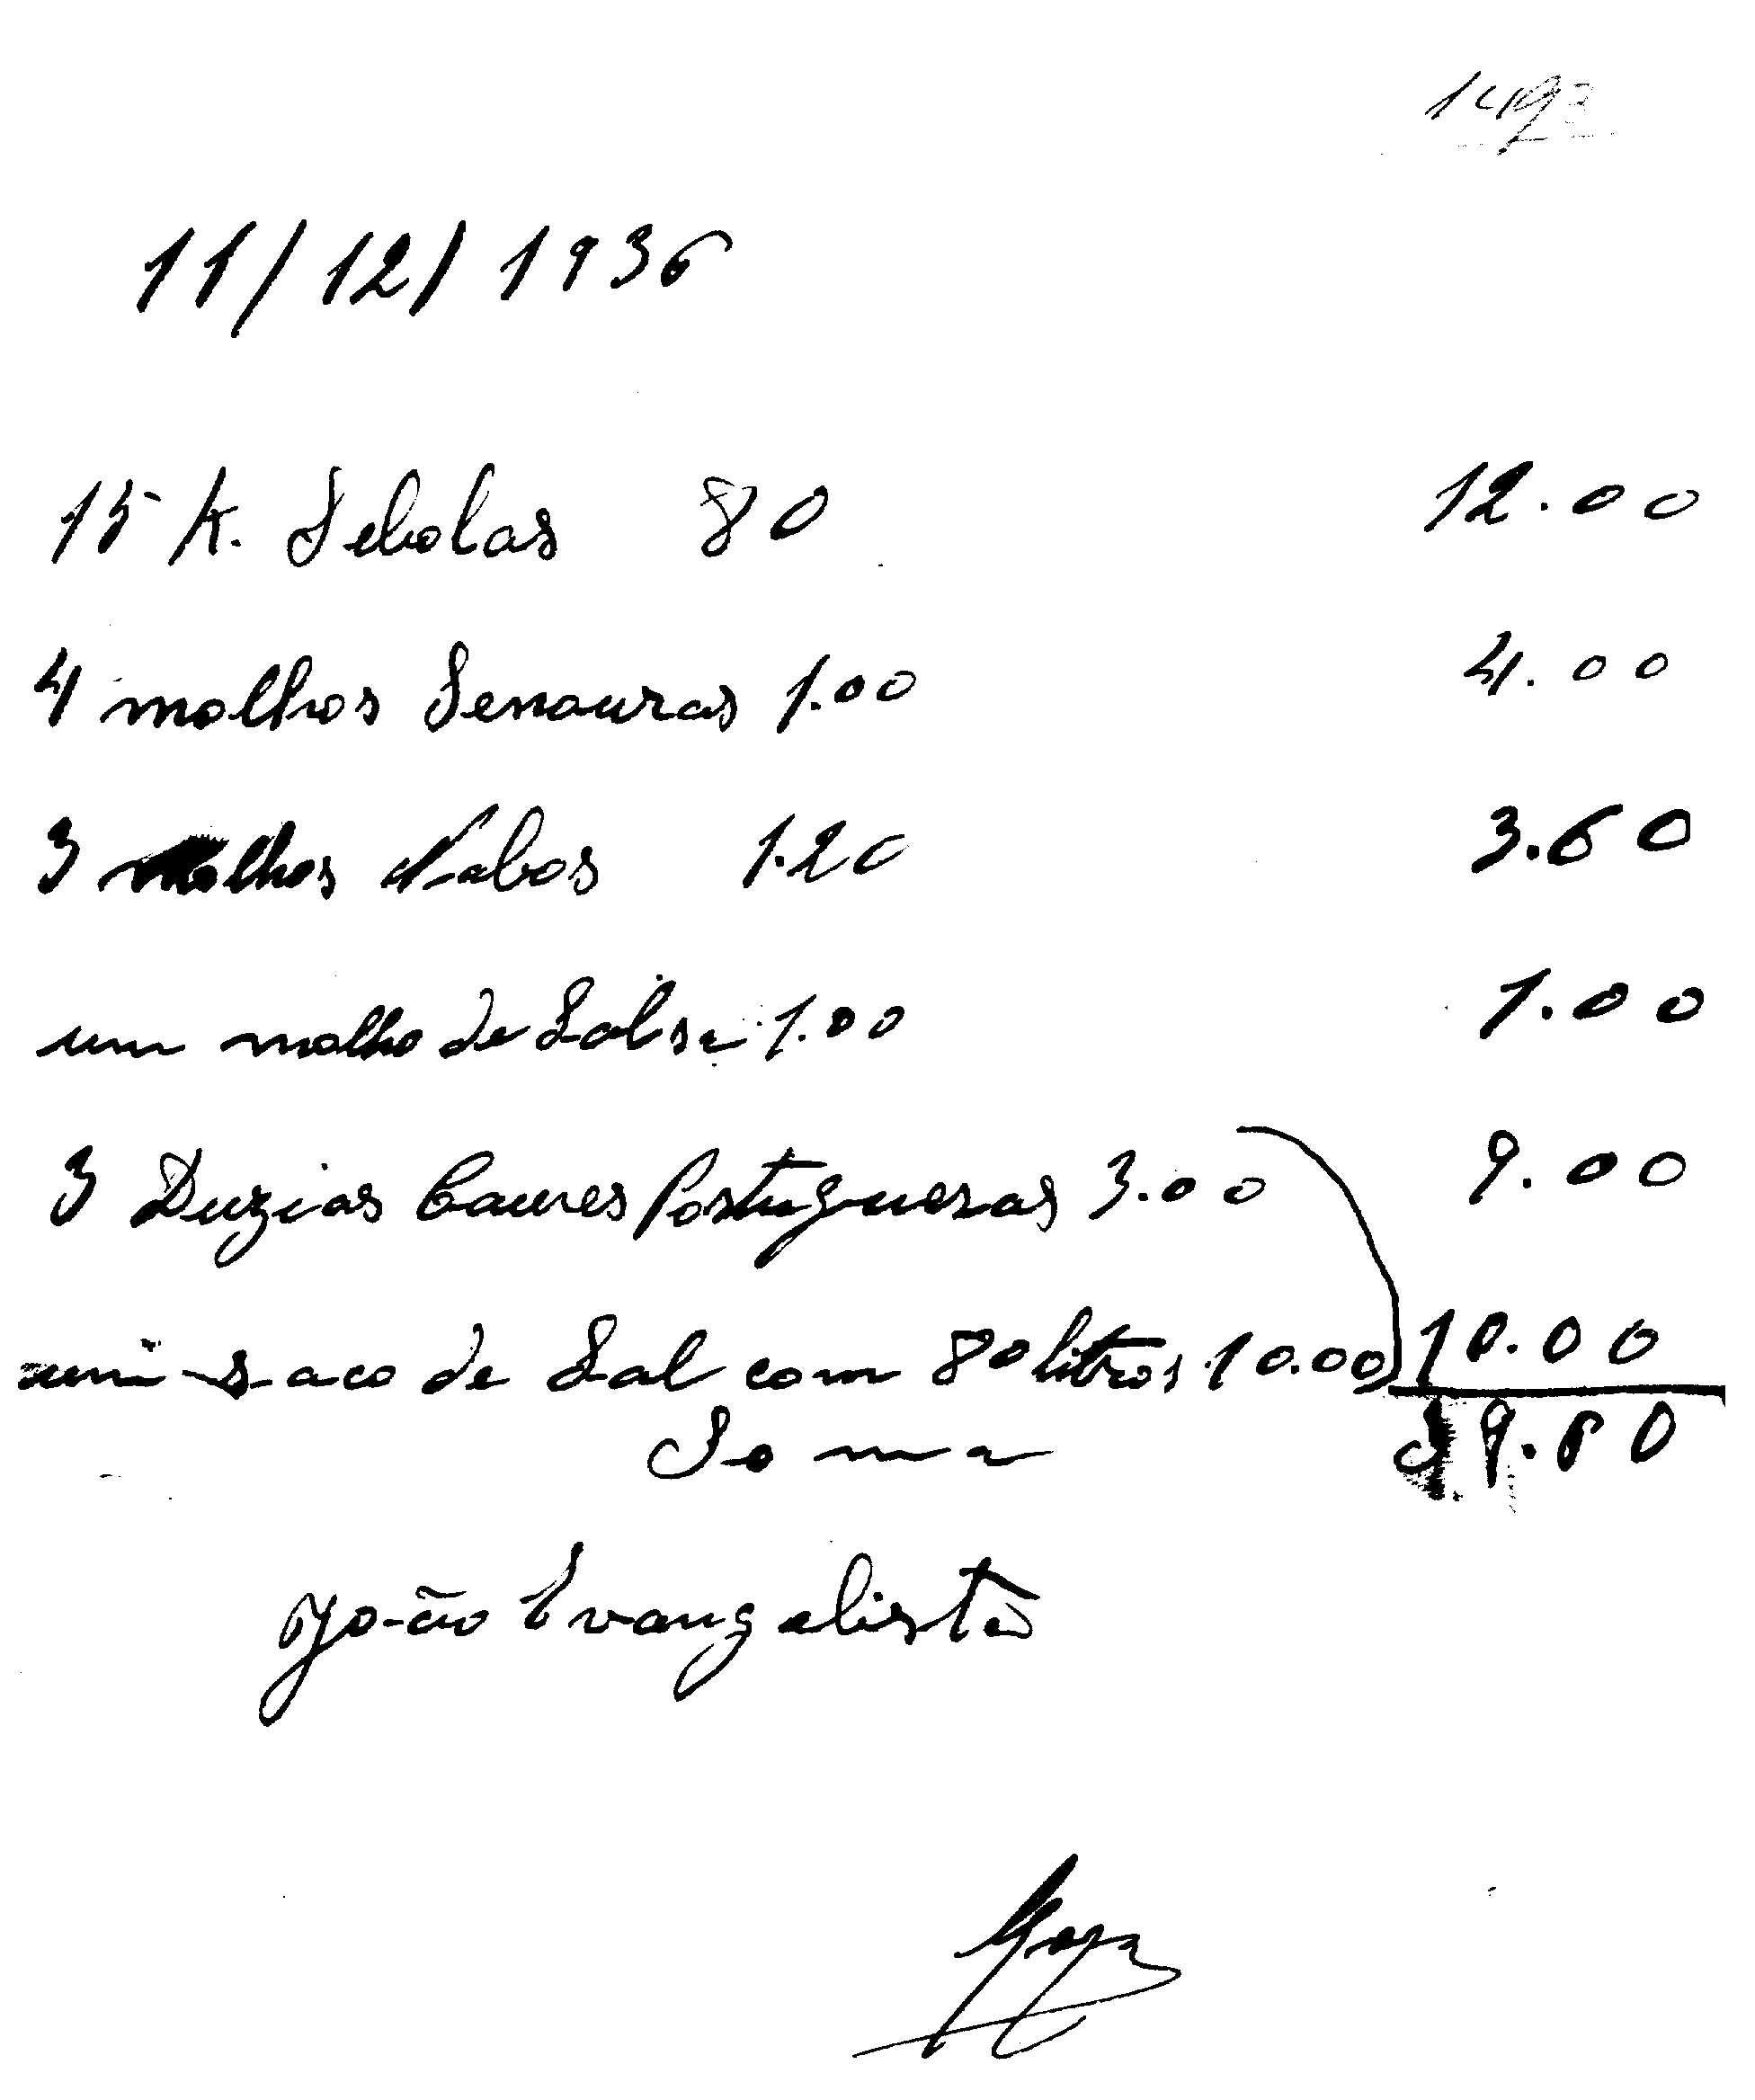 11/12/1936
15 K. Sebolas 80 12.00
4 molhos Senouras 1.00 4.00
3 molhos Nabos 1.20 3.60
um molho de Salsa 1.00 1.00
3 Duzias Couves Portuguesas 3.00 9.00
um saco de Sal com 80 litros 10.00 10.00
Soma 39.60
João Evangelista